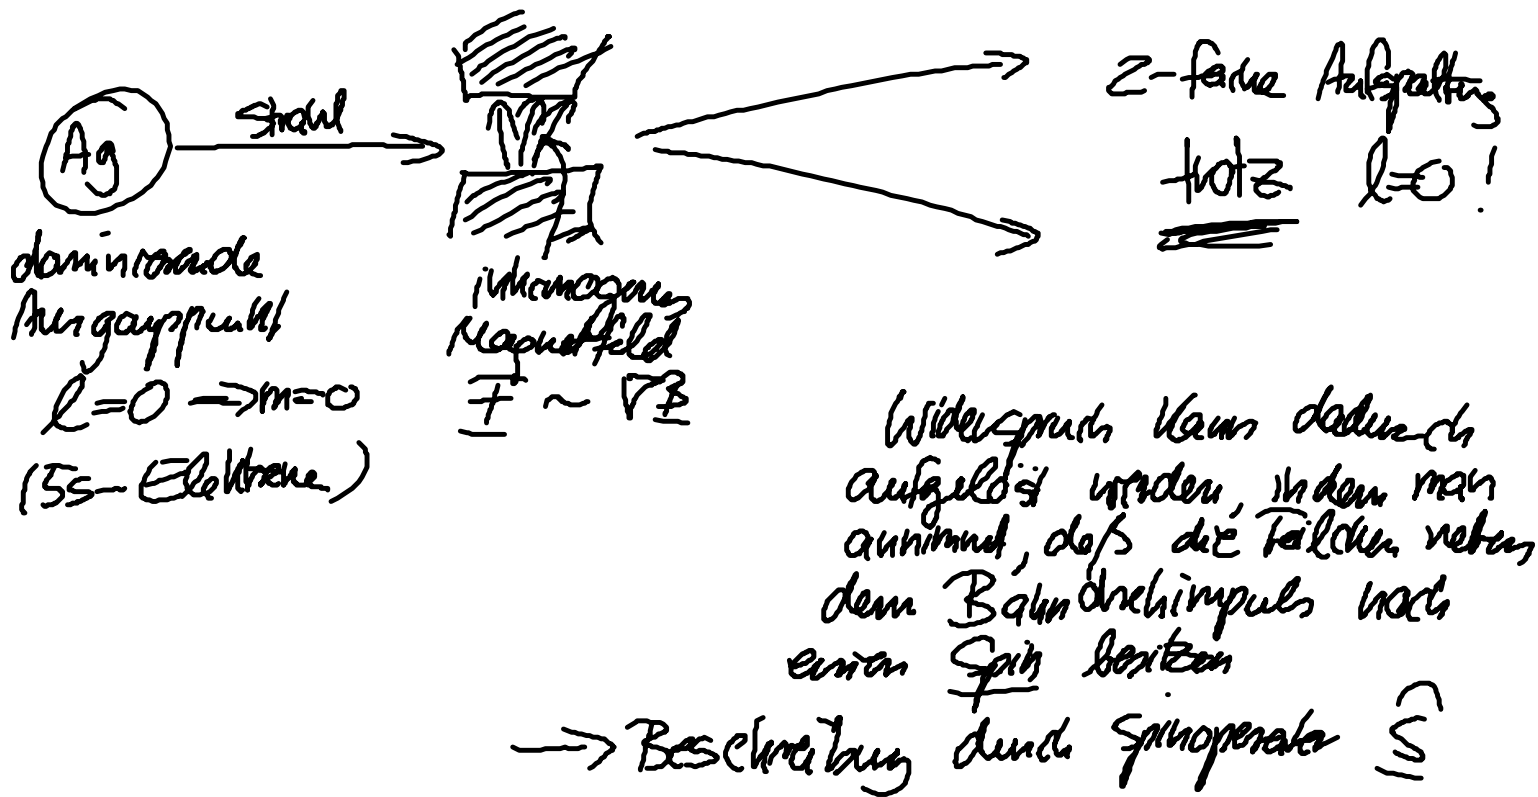 Ag
Strahl
dominierende
Ausgangspunkt
l=0 → m=0
(5s-Elektronen)
inhomogenes
Magnetfeld
F ~ ∇B
2-fache Aufspaltung
trotz l=0!
Widerspruch kann dadurch
aufgelöst werden, indem man
annimmt, daß die Teilchen neben
dem Bahndrehimpuls noch
einen Spin besitzen
→ Beschreibung durch Spinoperator Ŝ